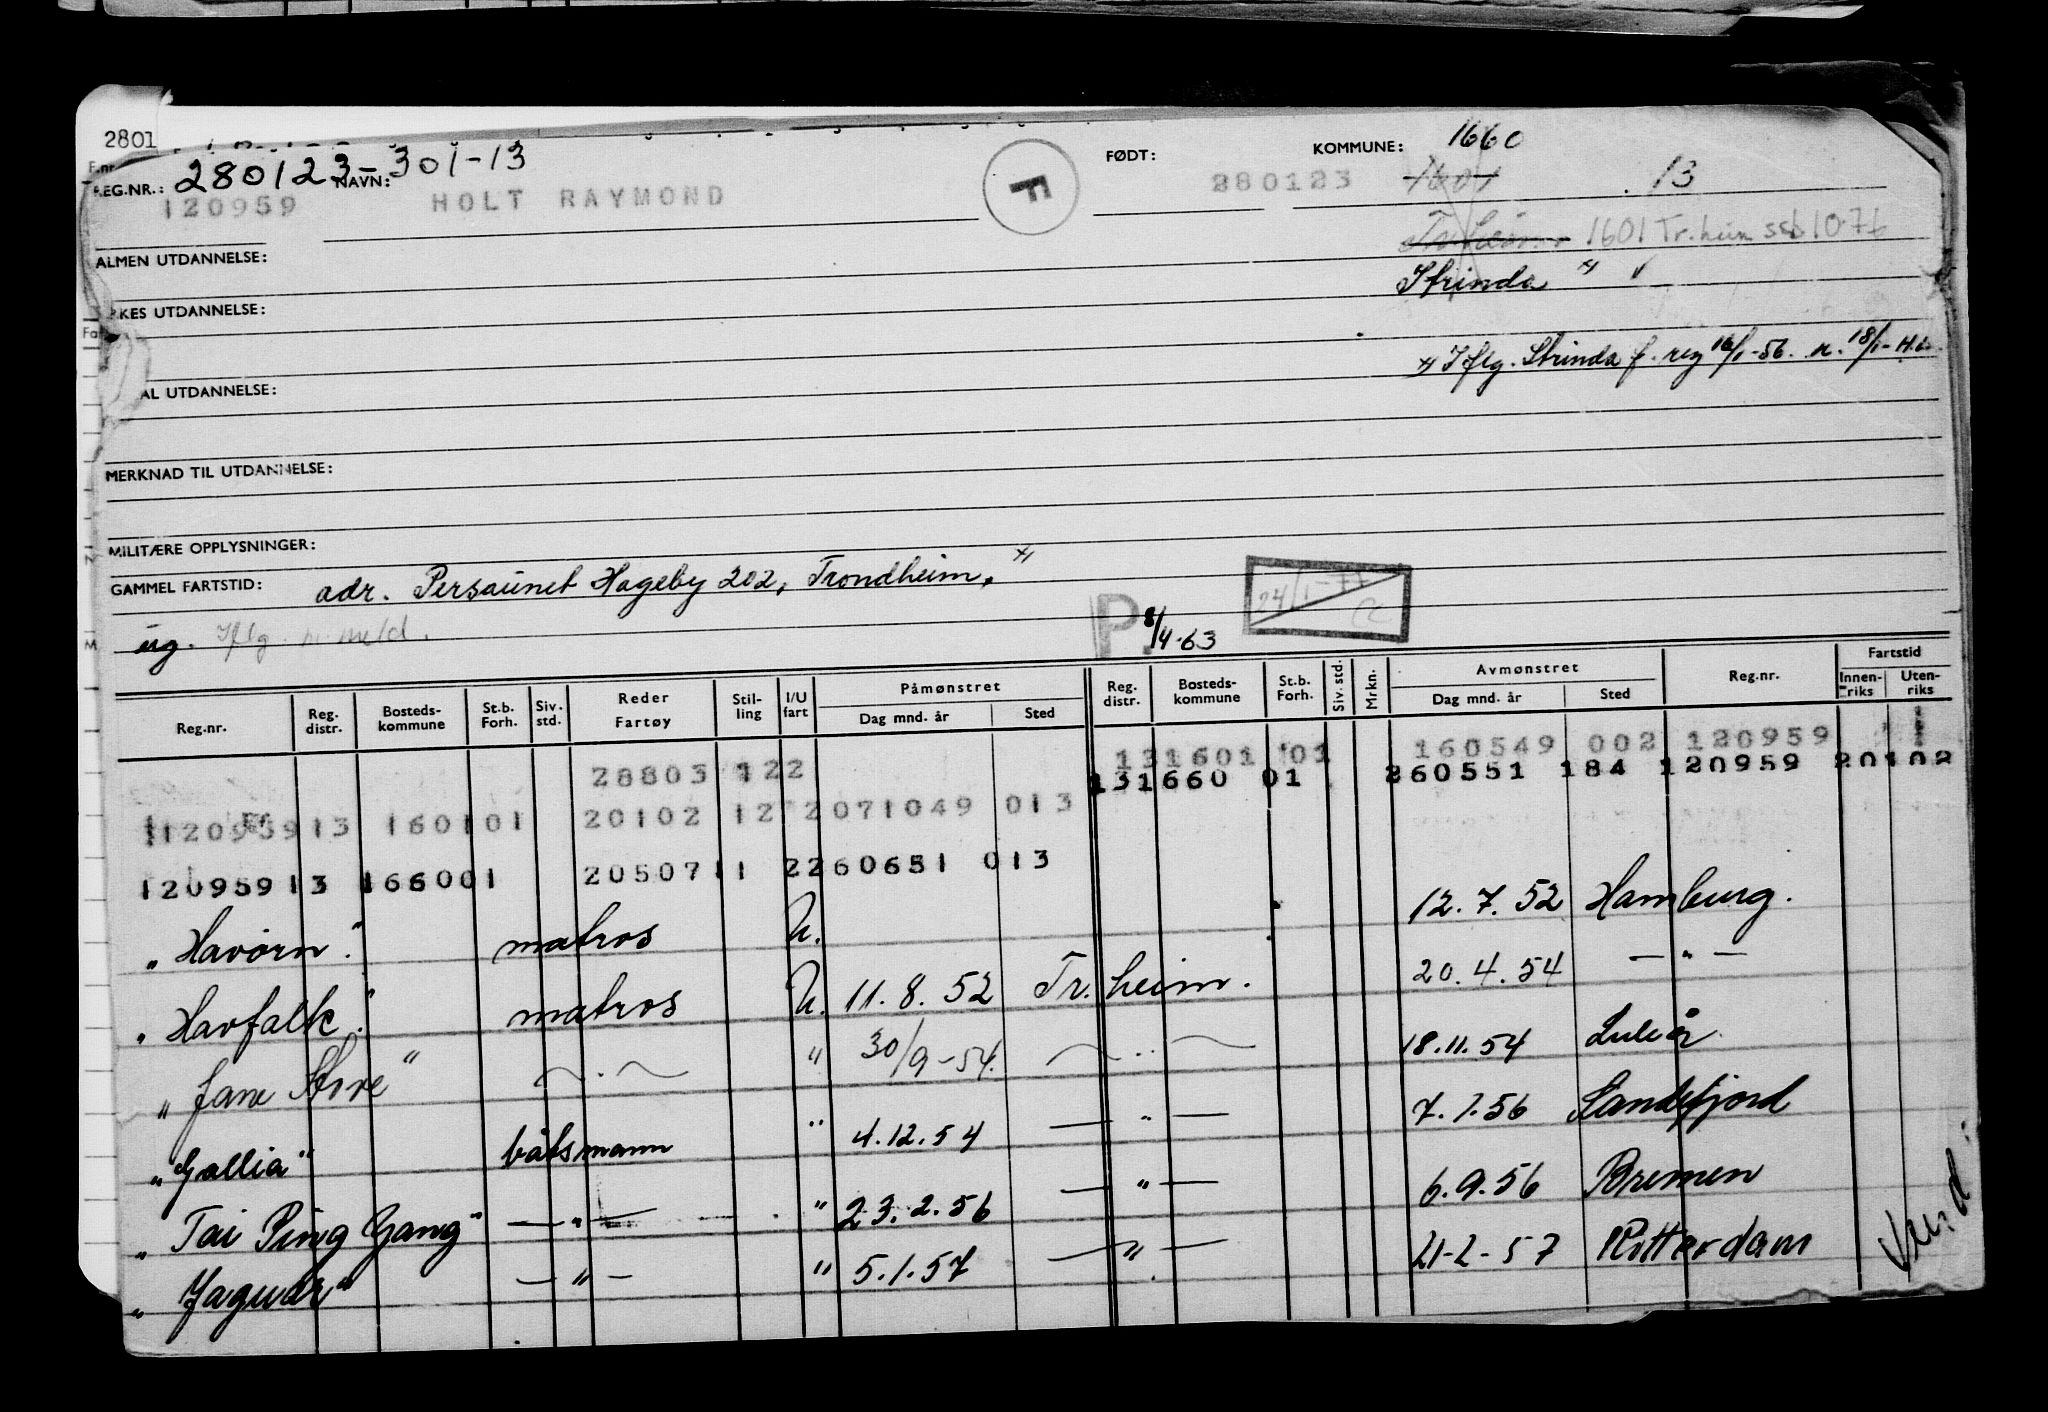 2801
F.nr
REG.NR.: 280123-301-13 NAVN: FØDT: KOMMUNE: 1660
120959 HOLT RAYMOND F 280123 1601 13
Tr.heim 1601 Tr.heim ssb 10-76
ALMEN UTDANNELSE: Strinda x)
RKES UTDANNELSE:
x) Iflg. Strinda f. reg 16/1-56. n. 18/1-
AL UTDANNELSE:
MERKNAD TIL UTDANNELSE:
MILITÆRE OPPLYSNINGER:
GAMMEL FARTSTID: adr. Persaunet Hageby 202, Trondheim, x)
24/1-77
ug. Iflg. n. meld. P. 8/4-63
Reg.nr. Reg. distr. Bosteds-kommune St.b. Forh. Siv. std. Reder Fartøy Stil-ling I/U fart Påmønstret Dag mnd. år Sted Reg. distr. Bosteds-kommune St.b. Forh. Siv. std. Mrkn. Avmønstret Dag mnd. år Sted Reg.nr. Fartstid Innen-riks Uten-riks
28803 122 131601 01 160549 002 120959
131660 01 260551 184 120959 20102
112095913 160101 20102 12 2071049 013
12095913 166001 2050711 2260651 013
"Havørn". matros U. 12.7.52 Hamburg.
"Havfalk". matros U. 11.8.52 Tr.heim. 20.4.54 — " —
"Jane Stove" — " — " 30/9-54. — " — 18.11.54 Luleå
"Gallia" båtsmann " 4.12.54 — " — 7.1.56 Sandefjord
"Tai Ping Gang" — " — " 23.2.56 — " — 6.9.56 Bremen
"Jaguar" — " — " 5.1.57 — " — 21-2-57 Rotterdam
Vend.